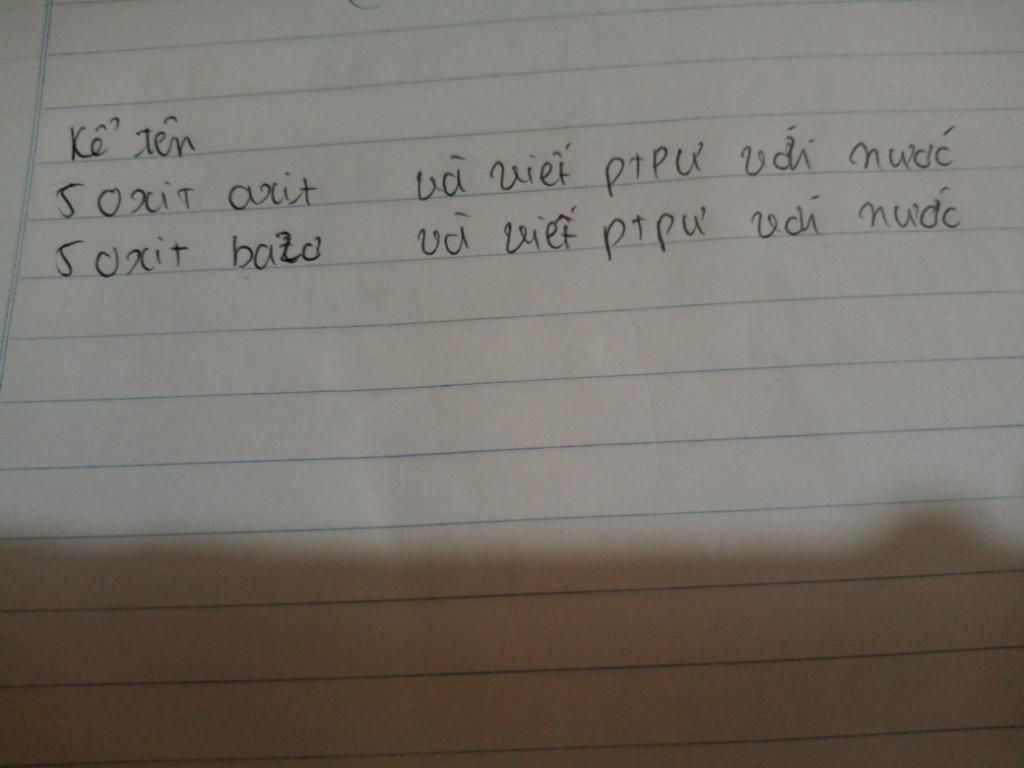 Kể tên
5 oxit axit và viết ptpư với nước
5 oxit bazo và viết ptpư với nước